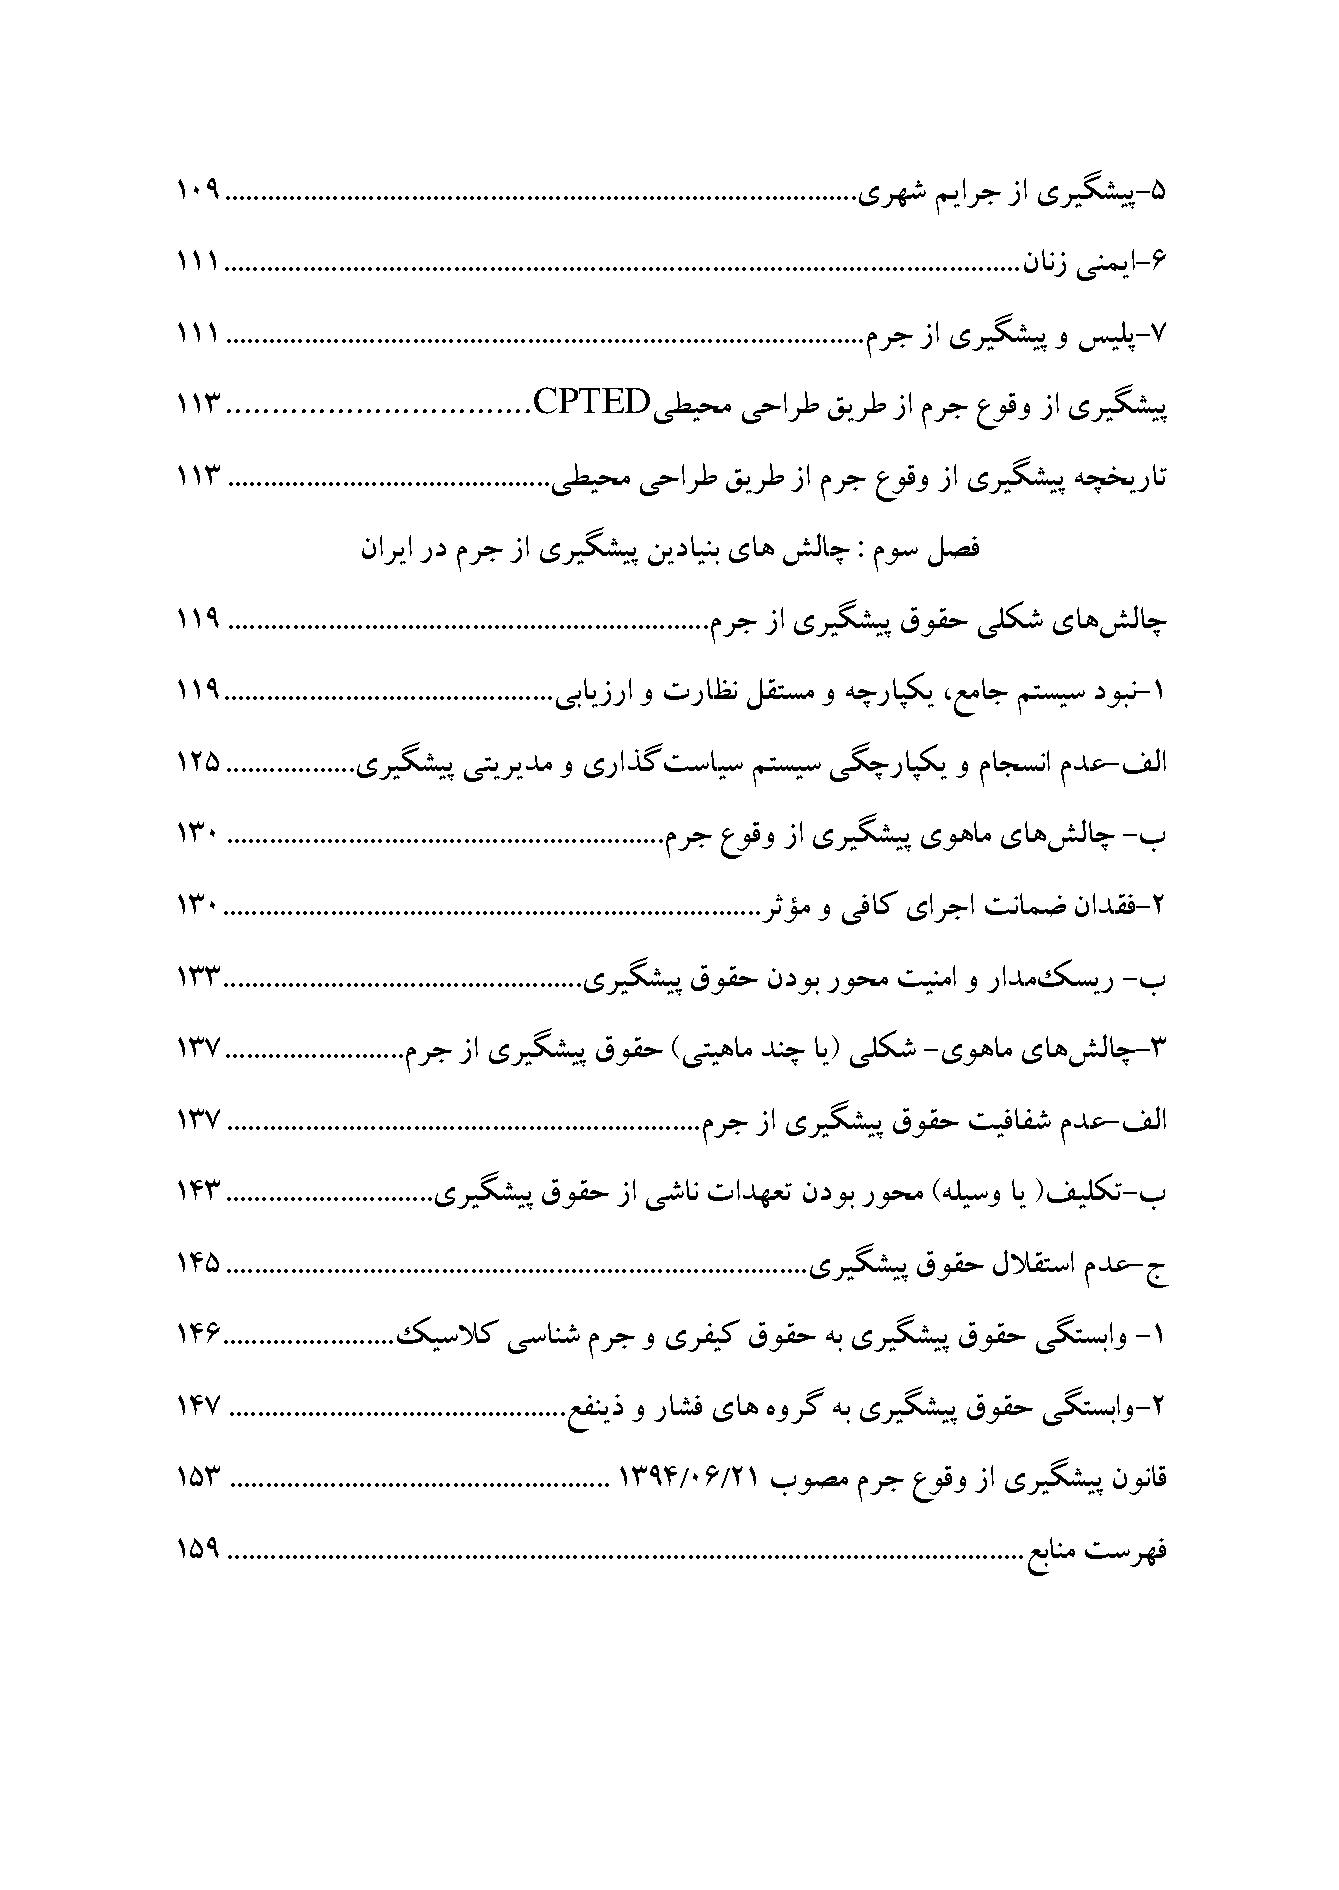 ۵-پیشگیری از جرایم شهری........................................................................................ ۱۰۹
۶-ایمنی زنان............................................................................................................... ۱۱۱
۷-پلیس و پیشگیری از جرم......................................................................................... ۱۱۱
پیشگیری از وقوع جرم از طریق طراحی محیطیCPTED................................. ۱۱۳
تاریخچه پیشگیری از وقوع جرم از طریق طراحی محیطی............................................. ۱۱۳
فصل سوم : چالش های بنیادین پیشگیری از جرم در ایران
چالش‌های شکلی حقوق پیشگیری از جرم................................................................... ۱۱۹
۱-نبود سیستم جامع، یکپارچه و مستقل نظارت و ارزیابی.............................................. ۱۱۹
الف-عدم انسجام و یکپارچگی سیستم سیاست‌گذاری و مدیریتی پیشگیری.................. ۱۲۵
ب- چالش‌های ماهوی پیشگیری از وقوع جرم............................................................. ۱۳۰
۲-فقدان ضمانت اجرای کافی و مؤثر........................................................................... ۱۳۰
ب- ریسک‌مدار و امنیت محور بودن حقوق پیشگیری.................................................. ۱۳۳
۳-چالش‌های ماهوی- شکلی (یا چند ماهیتی) حقوق پیشگیری از جرم......................... ۱۳۷
الف-عدم شفافیت حقوق پیشگیری از جرم.................................................................. ۱۳۷
ب-تکلیف( یا وسیله) محور بودن تعهدات ناشی از حقوق پیشگیری............................. ۱۴۳
ج-عدم استقلال حقوق پیشگیری................................................................................. ۱۴۵
۱- وابستگی حقوق پیشگیری به حقوق کیفری و جرم شناسی کلاسیک........................ ۱۴۶
۲-وابستگی حقوق پیشگیری به گروه های فشار و ذینفع............................................... ۱۴۷
قانون پیشگیری از وقوع جرم مصوب ۱۳۹۴/۰۶/۲۱ ..................................................... ۱۵۳
فهرست منابع............................................................................................................... ۱۵۹